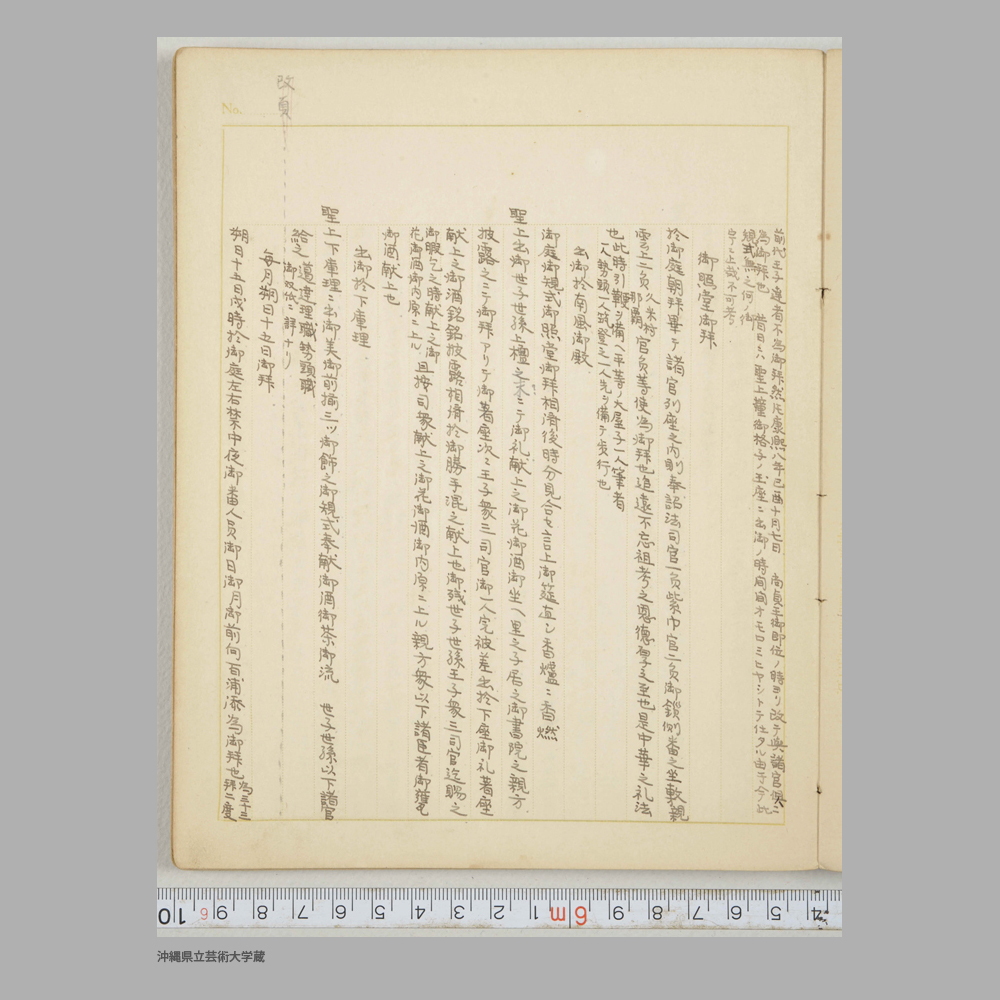 改頁
No.
前代王子達者不為御拜然圧康熙八年己酉十月七日 尚貞王御即位ノ時ヨリ改テ與諸官俱ニ
為御拜也 昔日ハ聖上瓏御格子ノ玉座ニ出御ノ時同宙オモロミヒヤシトテ仕タル由于今此
規式無之何ノ御
時ヨリ上裁不可考
御照堂御拜
於御庭朝拜畢テ諸官列座之内則奉詔法司官一員紫巾官二員御鎖側番之坐敷親
雲上二員久米村那覇官員等使為御拜也追遠不忘祖考之恩徳孝之至也是中華之礼法
也此時引轡ヲ備ヘ平等ノ大屋子一人筆者
一人勢頭一人筑登之一人先ヲ備テ歩行也
出御於南風御殿
御庭御規式御照堂御拜相済後時分見合セ言上御筵直シ香爐ニ香燃
聖上出御世子世孫上檀之末ニテ御礼献上之御花御酒御坐ヘ里之子居之御書院之親方
披露之ニテ御拜アリテ御着座次ニ王子衆三司官御一人宛被差出於下座御礼着座
献上之御酒銘銘披露相済於御勝手混之献上也御残世子世孫王子衆三司官迄賜之
御暇乞之時献上之御
花御酒御内原ニ上ル 且按司衆献上之御花御酒御内原ニ上ル親方衆以下諸臣者御蓋
御酒献上也
出御於下庫理
聖上下庫理ニ出御美御前揃三ツ御飾之御規式奉献御酒御茶御流 世子世孫以下諸官
給之 這達理職勢頭職
御双帋ニ詳ナリ
毎月朔日十五日御拜
朔日十五日戌時於御庭左右禁中夜御番人員御日御月御前向百浦添為御拜也為三十三
拜二度
10 9 8 7 6 5 4 3 2 1 6m 9 8 7 6 5 4
沖縄県立芸術大学蔵